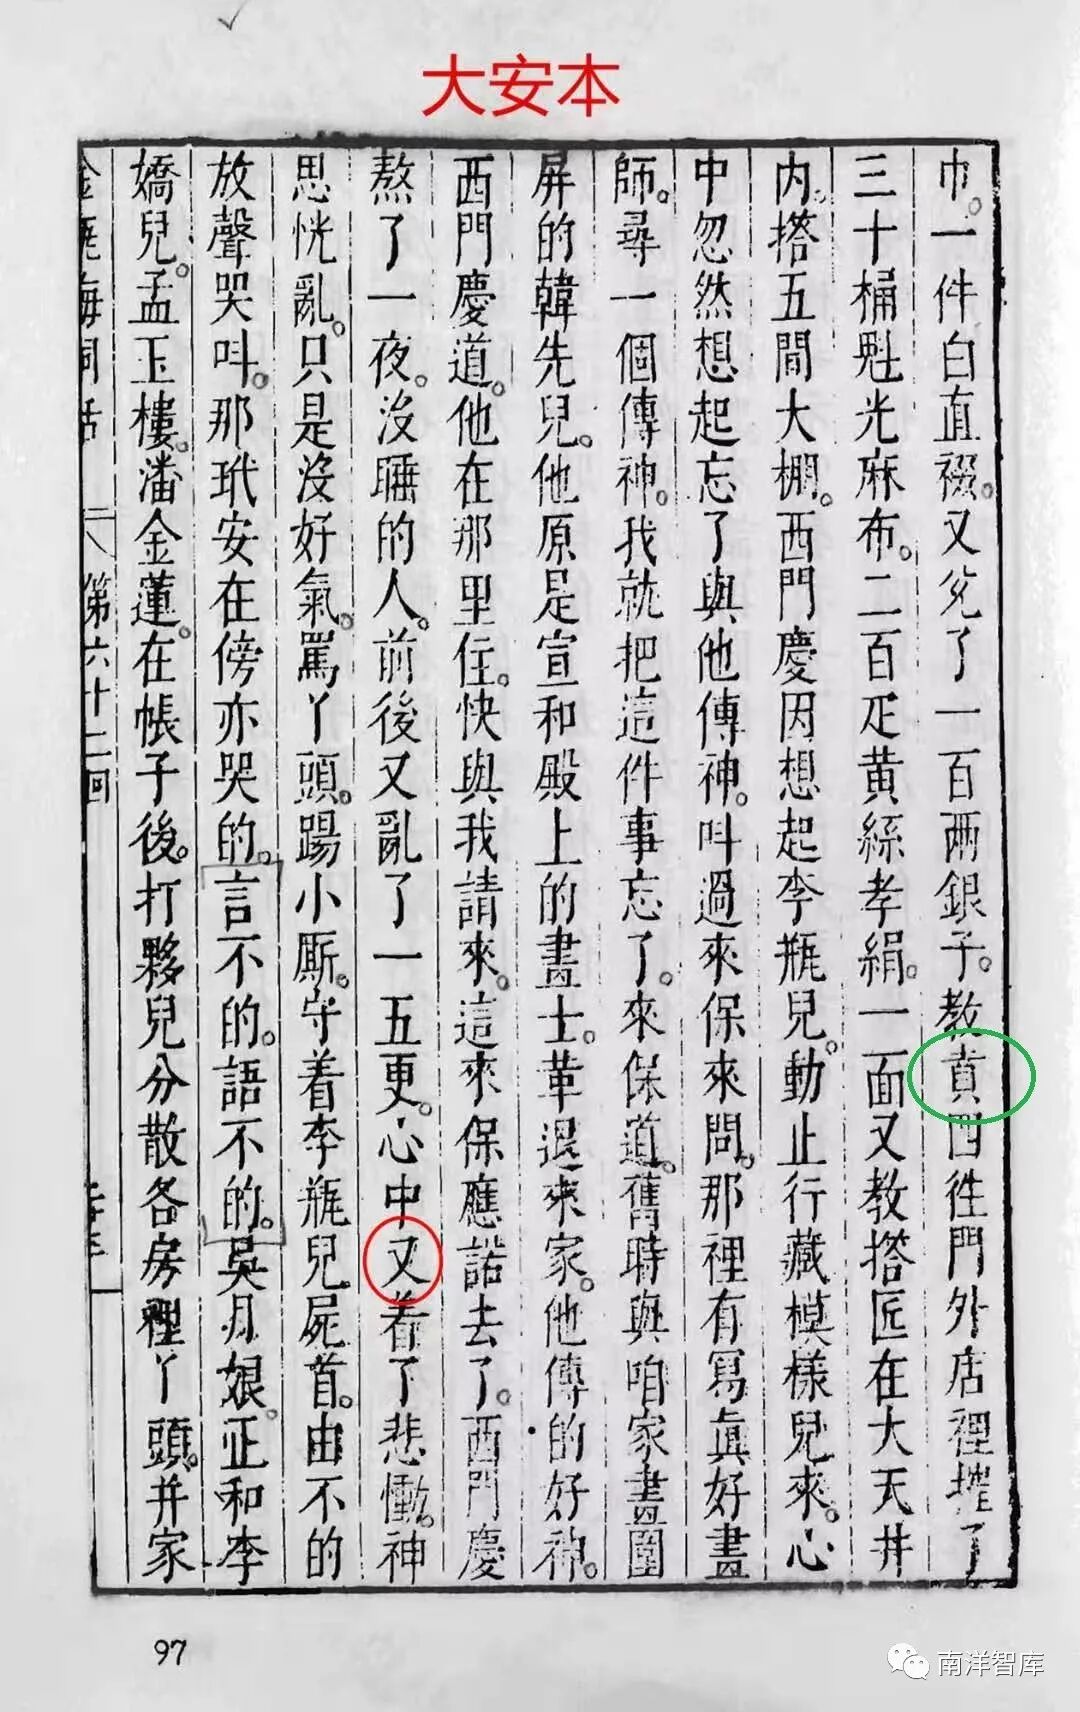 大安本
巾。一件白直裰。又兊了一百兩銀子。教賁四徃門外店裡搉了
三十桶魁光麻布。二百疋黄絲孝絹。一面又教搭匠在大天井
内。搭五間大棚。西門慶因想起李瓶兒。動止行藏模樣兒來。心
中忽然想起忘了與他傳神。呌過來保來問。那裡有寫眞好畫
師。尋一個傳神。我就把這件事忘了。來保道。舊時與咱家畫圍
屏的韓先兒。他原是宣和殿上的畫士。革退來家。他傳的好神。
西門慶道。他在那里住。快與我請來。這來保應諾去了。西門慶
熬了一夜。沒睡的人。前後又亂了一五更。心中又着了悲慟。神
思恍亂。只是沒好氣。駡丫頭。踢小厮。守着李瓶兒屍首。由不的
放聲哭呌。那玳安在傍亦哭的。言不的。語不的。吳月娘。正和李
嬌兒。孟玉樓。潘金蓮。在帳子後。打夥兒分散各房裡丫頭。并家
金瓶梅詞話 第六十二回
97
南洋智库